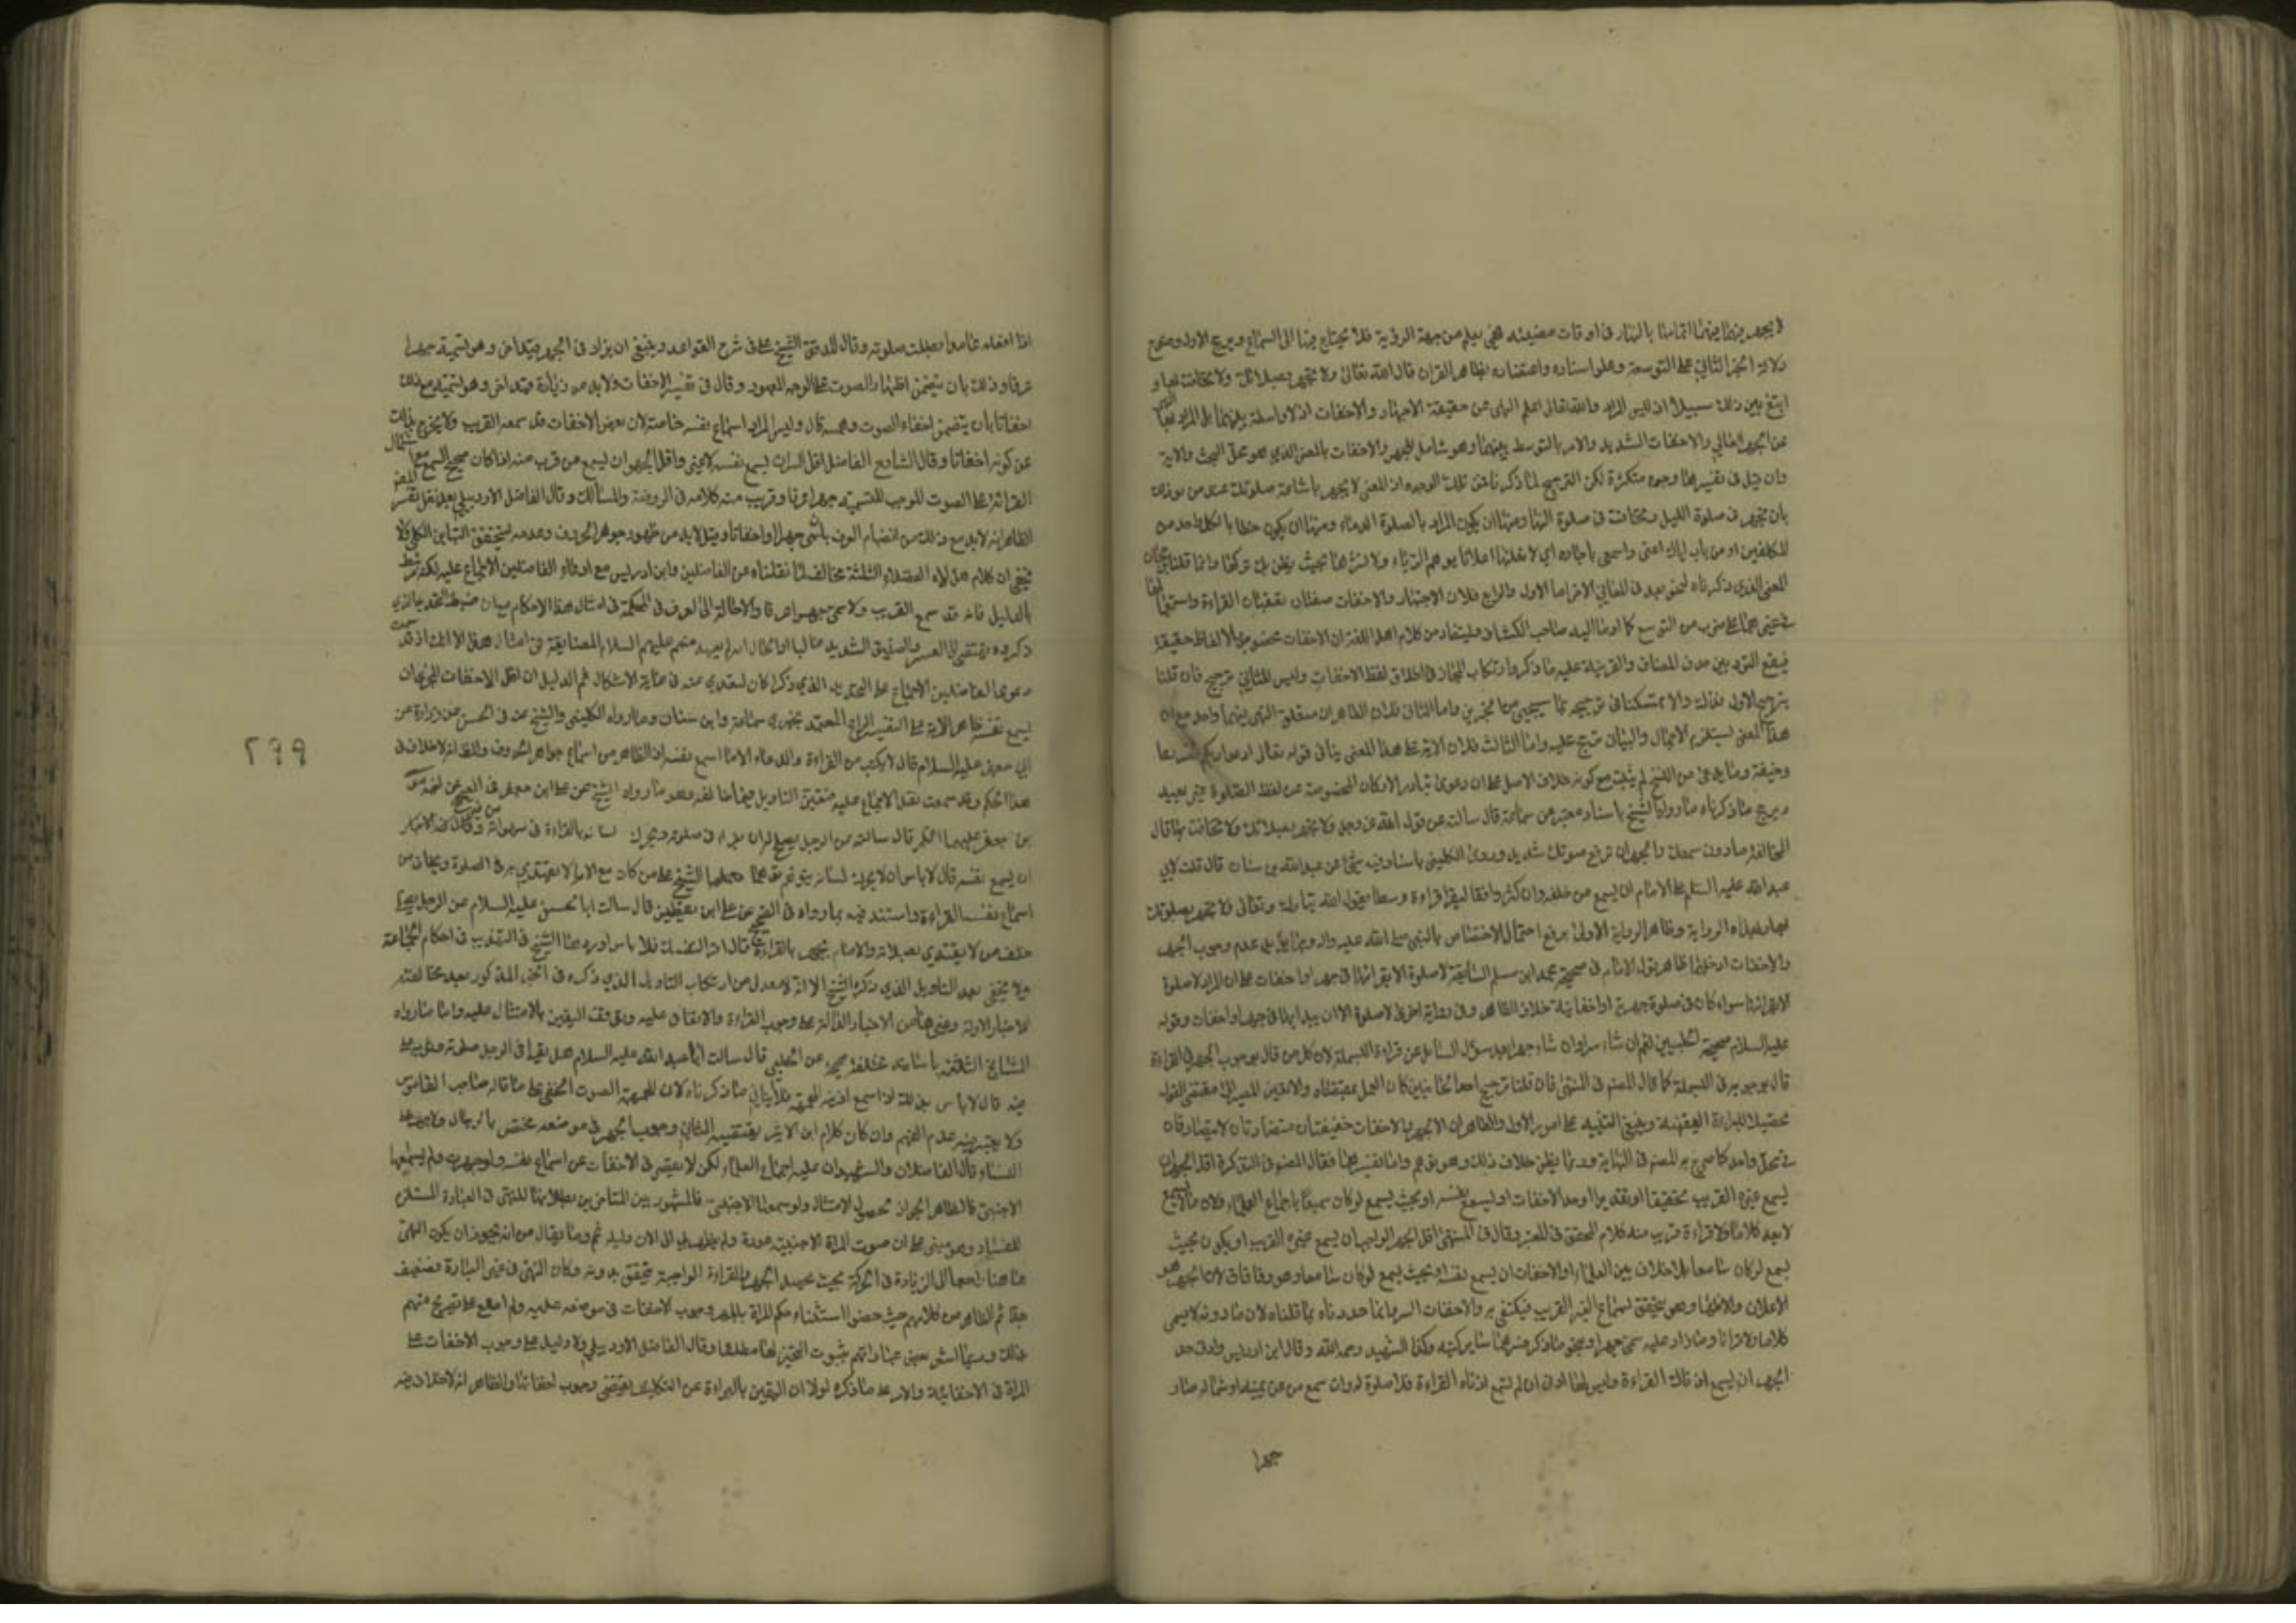 لا يجهر فيها فيهما انما صلينا بالنهار فى اوقات مضيئه فهى يعلم من جهة الرؤية فلا يحتاج فيها الى السماع ويرجح الاول وضوح
دلالة الخبر الثاني على التوسعة وعلو اسناده واعتضاده بظاهر القران قال الله تعالى ولا تجهر بصلاتك ولا تخافت بها و
ابتغ بين ذلك سبيلا اذ ليس المراد والله تعالى اعلم النهى عن حقيقة الاجهار والاخفات اذ لا واسطة بينهما بل المراد
عن الجهر العالي والاخفات الشديد والامر بالتوسط بينهما وهو شامل للجهر والاخفات بالمعنى الذي هو محل البحث والاية
وان قيل فى تفسيرها وجوه متكثرة لكن الترجيح لما ذكرنا فمن تلك الوجوه ان المعنى لا تجهر باشاعة صلوتك عند من يوذيك
بان تجهر فى صلوة الليل وتخافت فى صلوة النهار ومنها ان يكون المراد بالصلوة الدعاء ومنها ان يكون خطابا لكل واحد من
المكلفين او من باب اياك اعنى واسمعى يا جاره اي لا تعلنها اعلانا يوهم الرياء ولا تسترها بحيث يظن بك تركها وانما قلنا
المعنى الذي ذكرناه لبعد المعاني الاخر اما الاول والرابع فلان الاجهار والاخفات صفتان تقعان القراءة واستعمالهما
فى غيرهما على ضرب من التوسع كما اومأ اليه صاحب الكشاف وليستفاد من كلام اهل اللغة ان الاخفات مخصوص بالالفاظ حقيقة
فيقع التردد بين حذف المضاف والقرينة عليه ما ذكر وارتكاب المجاز فى اطلاق لفظ الاخفات وليس للثاني ترجيح فان قلنا
بترجيح الاول فذاك والا تمسكنا فى ترجيحه بما سيجيء من الخبرين واما الثاني فلان الظاهر ان متعلق النهى فيهما واحد مع ان
هذا المعنى يستلزم الاجمال والبيان مرجح عليه واما الثالث فلان الاية على هذا المعنى ينافى قوله تعالى ادعوا ربكم تضرعا
وخيفة وما يدعى من النسخ لم يثبت مع كونه خلاف الاصل على ان دعوى تبادر الاركان المخصوصة من لفظ الصلوة غير بعيد
ويرجح ما ذكرناه ما رواه الشيخ باسناد معتبر عن سماعة قال سالته عن قول الله عز وجل ولا تجهر بصلاتك ولا تخافت بها قال
المخافتة ما دون سمعك والجهر ان ترفع صوتك شديدا وروى الكليني باسناد فيه شئ عن عبدالله بن سنان قال قلت لابي
عبدالله عليه السلم على الامام ان يسمع من خلفه وان كثروا فقال ليقرا قراءة وسطا يقول الله تبارك وتعالى ولا تجهر بصلوتك
وبهذه الرواية وظاهر الرواية الاولى يرفع احتمال الاختصاص بالنبى صلى الله عليه واله ومما يؤيد عدم وجوب الجهر
والاخفات اذ حملنا ظاهر قول الامام فى صحيحة محمد ابن مسلم السابقة لا صلوة الا بقرائتها فى جهر او اخفات على ان المراد لا صلوة
الا بقرائتها سواء كان فى صلوة جهرية او اخفاتية خلاف الظاهر وفى رواية اخرى لا صلوة الا ان يبدا بها فى جهر او اخفات وقوله
عليه السلام فى صحيحة الحلبيين نعم ان شاء سرا وان شاء جهرا بعد سؤال السائل عن قراءة البسملة لان كل من قال بوجوب الجهر فى القراءة
قال بوجوبه فى البسملة كما قال المصنف فى المنتهى فان قلنا بترجيح احد الجانبين كان العمل بمقتضاه والا تعين المصير الى مقتضى القول
تحصيلا للبراءة اليقينية وينبغى التنبيه على امور الاول الظاهر ان الجهر والاخفات حقيقتان متضادتان لا يتصادقان
فى محل واحد كما صرح به المصنف فى النهاية وربما يظن خلاف ذلك وهو توهم واما تفسيرهما فقال المصنف فى التذكرة اقل الجهر ان
يسمع غيره القريب تحقيقا او تقديرا وحد الاخفات ان يسمع نفسه او بحيث يسمع لو كان سميعا باجماع العلماء ولان ما لا يسمع
لا يعد كلاما ولا قراءة قريب منه كلام المحقق فى المعتبر وقال فى المنتهى اقل الجهر الواجب ان يسمع غيره القريب او يكون بحيث
يسمع لو كان سامعا بلا خلاف بين العلماء والاخفات ان يسمع نفسه او بحيث يسمع لو كان سامعا وهو وفاق لان الجهر هو
الاعلان والاظهار وهو يتحقق بسماع الغير القريب فيكتفى به والاخفات السر وانما حددناه بما قلناه لان ما دونه لا يسمى
كلاما ولا قرانا وما زاد عليه سمى جهرا ونحو ما ذكر منهما سائر كتبه وكذا الشهيد رحمه الله وقال ابن ادريس وادنى حد
الجهر ان يسمع من تلك القراءة وليس لها ادنى ان لم تسمع اذناه القراءة فلا صلوة له وان سمع من عن يمينه او شماله صار
جهرا
اذا افعله عامدا بطلت صلوته وقال المدقق الشيخ على فى شرح القواعد وينبغى ان يزاد فى الجهر قيد اخر وهو تسميته جهرا
عرفا وذلك بان يتضمن اظهار الصوت على الوجه المعهود وقال فى تفسير الاخفات ولا بد من زيادة قيد اخر وهو تسميته مع ذلك
اخفاتا بان يتضمن اخفاء الصوت وهمسه قال وليس المراد اسماع نفسه خاصة لان بعض الاخفات قد يسمعه القريب ولا يخرج بذلك
عن كونه اخفاتا وقال الشارح الفاضل اقل السر ان يسمع نفسه لا غير واقل الجهر ان يسمع من قرب منه اذا كان صحيح السمع مع اشتمال
القرائة على الصوت الموجب لتسميته جهرا عرفا وقريب منه كلامه فى الروضة والمسالك وقال الفاضل الاردبيلي بعد نقل تفسير المصنف
الظاهر انه لا بد مع ذلك من انضمام العرف بانه يسمى جهرا او اخفاتا وقيل لا بد من ظهور جوهر الحروف وعدمه ليتحقق التباين الكلى ولا
يخفى ان كلام هؤلاء الفضلاء الثلثة مخالف لما نقلناه عن الفاضلين وابن ادريس مع ادعاء الفاضلين الاجماع عليه لكنه مرتبط
بالدليل فانه قد سمع القريب ولا سمى جهرا عرفا والاحالة الى العرف فى الحكمة فى امثال هذه الاحكام وبيان ضبط التحديد الذي
ذكروه يقتضى العسر والضيق الشديد غالبا والحال انه لم يعهد منهم عليهم السلام المضايقة فى امثال هذا الا ان اذ قد سمعت
دعوى الفاضلين الاجماع على التحديد الذي ذكرا كان التعدي عنه فى غاية الاشكال ثم الدليل ان اقل الاخفات المجزى ان
يسمع نفسه ظاهر الاية على التفسير الراجح المعتمد بخبري سماعة وابن سنان وما رواه الكليني والشيخ عنه فى الحسن عن زرارة عن
ابي جعفر عليه السلام قال لا يكتب من القراءة والدعاء الا ما اسمع نفسه اذ الظاهر من اسماع جواهر الحروف والظاهر انه لا خلاف فى
هذا الحكم وقد سمعت نقل الاجماع عليه فتعين التاويل فيما خالفه وهو ما رواه الشيخ عن على ابن جعفر فى الصحيح عن اخيه موسى
بن جعفر عليهما السلم قال سالته عن الرجل يصلح له ان يقرا فى صلوته ويحرك لسانه بالقراءة فى لهواته من غير
ان يسمع نفسه قال لا باس ان لا يحرك لسانه يتوهم توهما وحملها الشيخ على من كان مع الامام لا يقتدي به فى الصلوة ويخاف من
اسماع نفسه القراءة واستند فيه بما رواه فى الصحيح عن على ابن يقطين قال سالت ابا الحسن عليه السلام عن الرجل يصلى
خلف من لا يقتدي بصلاته والامام يجهر بالقراءة قال اقرا لنفسك فلا باس اورده هذا الشيخ فى التهذيب فى احكام الجماعة
ولا يخفى بعد التاويل الذي ذكره الشيخ الا انه لا معدل من ارتكاب التاويل الذي ذكره فى الخبر المذكور بعد مخالفته
للاخبار الاولة وغيرها من الاخبار الدالة على وجوب القراءة والاتفاق عليه وتوقف اليقين بالامتثال عليه واما ما رواه
المشايخ الثلثة باسانيد مختلفة صحيحة عن الحلبي قال سالت ابا عبد الله عليه السلام هل يقرا فى الرجل صلوته وثوبه على
فيه قال لا باس بذلك اذا اسمع اذنيه الهمهمة فلا ينافي ما ذكرناه لان الهمهمة الصوت الخفى على ما قاله صاحب القاموس
ولا يعتبر فيه عدم الفهم وان كان كلام ابن الاثير يقتضيه الثاني وجوب الجهر فى موضعه مختص بالرجال ولا جهر على
النساء قاله الفاضلان والشهيدان عليه اجماع العلماء لكن لا يعتبر فى الاخفات عن اسماع نفسها ولو جهرت ولم يسمعها
الاجنبى فالظاهر الجواز لحصول الامتثال ولو سمعها الاجنبى فالمشهور بين المتاخرين بطلانها للنهى فى العبادة المستلزم
للفساد وهو مبنى على ان صوت المراة الاجنبية عورة ولم يظهر لى الى الان دليله ثم وما يقال من انه يجوز ان يكون النهى
هاهنا راجعا الى الزيادة فى الحركة بحيث يحصل الجهر والقراءة الواجبة يتحقق بدونه وكان النهى فى غير العبادة فضعيف
جدا ثم الظاهر من كلامهم حيث خصوا استثناء حكم المراة بالجهر وجوب الاخفات فى موضعه عليه ولم اطلع على تصريح منهم
بذلك وربما اشعر بعض عباراتهم بثبوت التخيير لها مطلقا وقال الفاضل الاردبيلي ولا دليل على وجوب الاخفات على
المراة فى الاخفاتية والامر على ما ذكره لولا ان اليقين بالبراءة عن التكليف يقتضى وجوب اخفاتها والظاهر انه لا خلاف فيه
٢٩٩